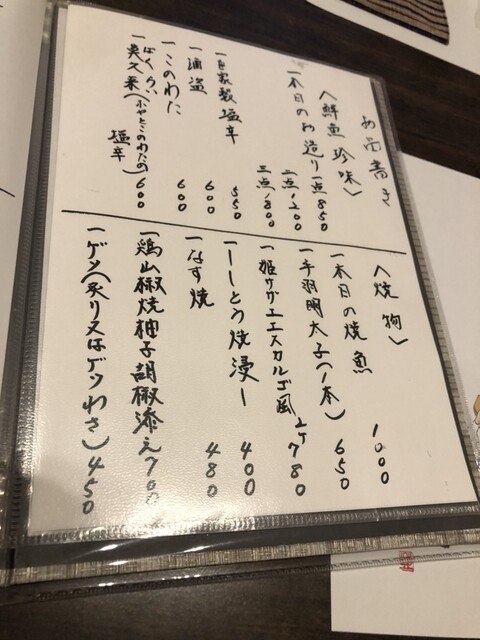 お品書き
〈鮮魚珍味〉
一本日のお造り 一点850
二点1,200
三点1,800
一自家製塩辛 550
一酒盗 600
一このわた 600
ばくらい
一莫久来(ホヤとこのわたの塩辛) 600
〈焼物〉
一本日の焼魚 1000
一手羽明太子(1本) 650
一姫サザエエスカルゴ風 2ケ 780
一ししとう焼浸し 400
一なす焼 480
一鶏山椒焼柚子胡椒添え 700
一ゲソ(炙り又はゲソわさ) 450